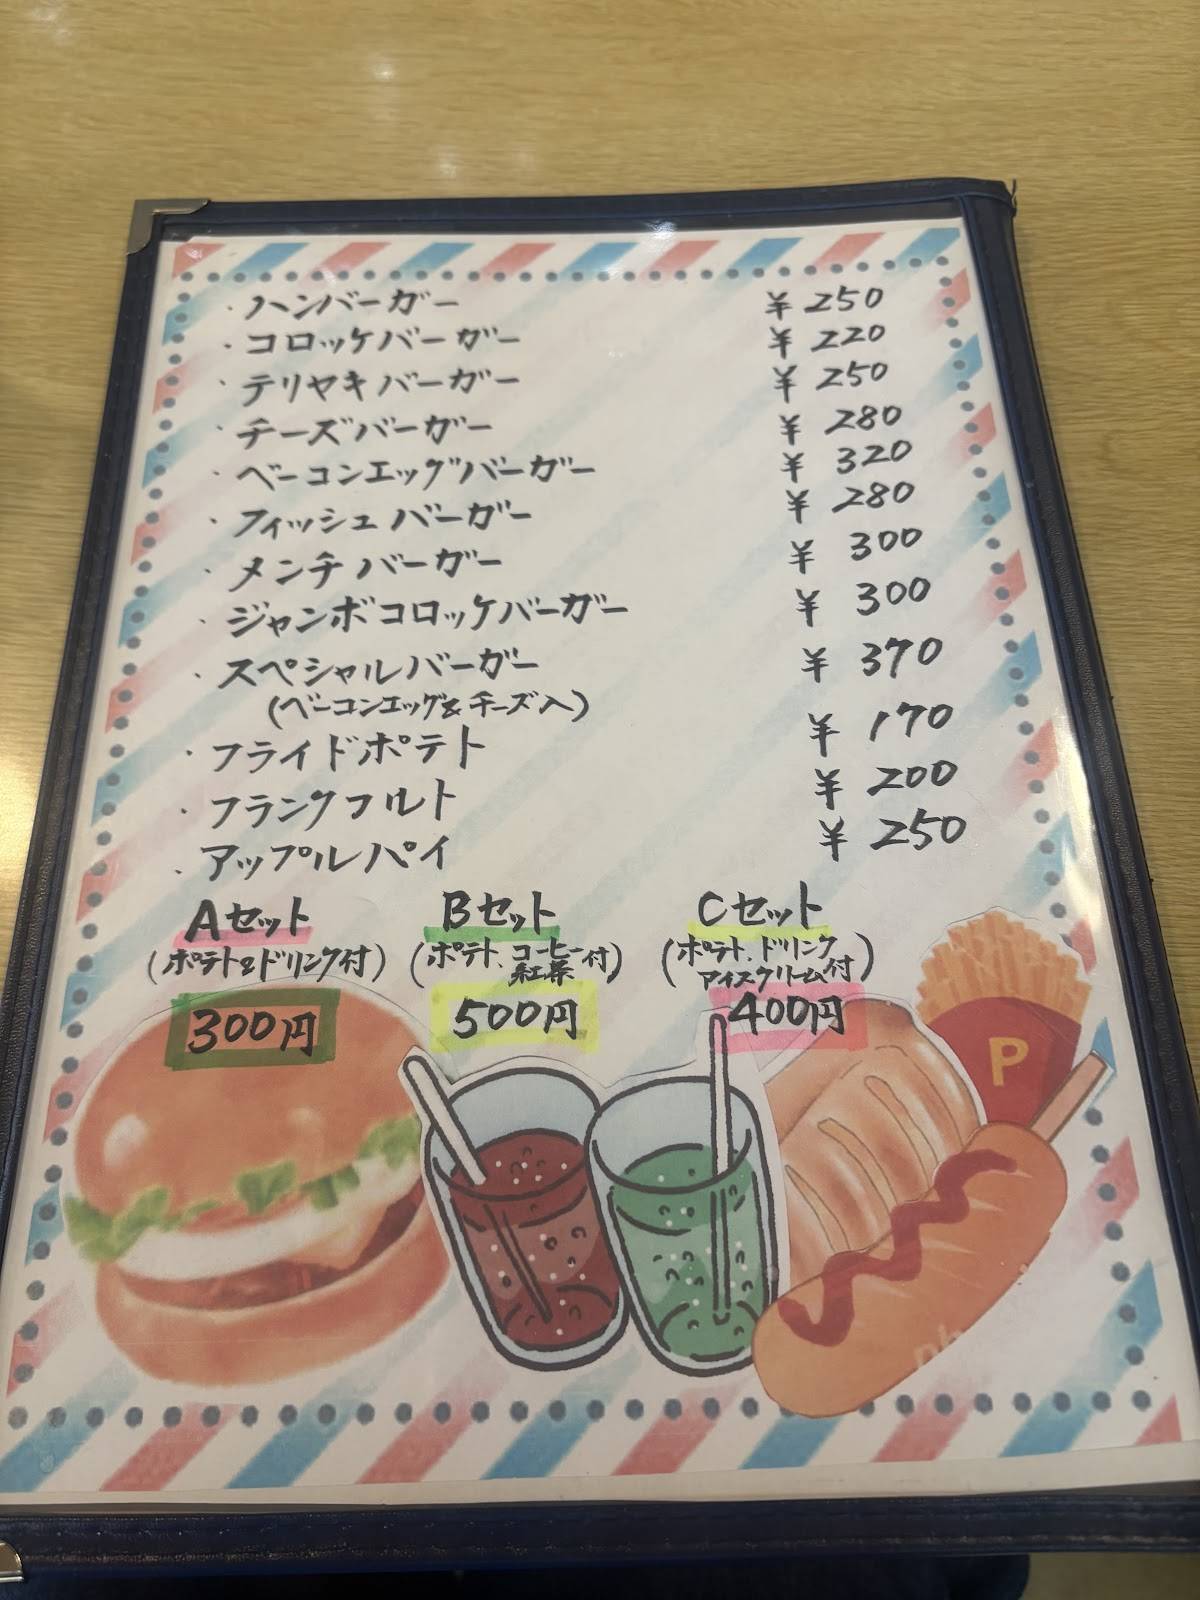 ・ハンバーガー ¥250
・コロッケバーガー ¥220
・テリヤキバーガー ¥250
・チーズバーガー ¥280
・ベーコンエッグバーガー ¥320
・フィッシュバーガー ¥280
・メンチバーガー ¥300
・ジャンボコロッケバーガー ¥300
・スペシャルバーガー ¥370
(ベーコンエッグ&チーズ入)
・フライドポテト ¥170
・フランクフルト ¥200
・アップルパイ ¥250
Aセット
(ポテト&ドリンク付)
300円
Bセット
(ポテト、コーヒー紅茶付)
500円
Cセット
(ポテト、ドリンク
アイスクリーム付)
400円
P